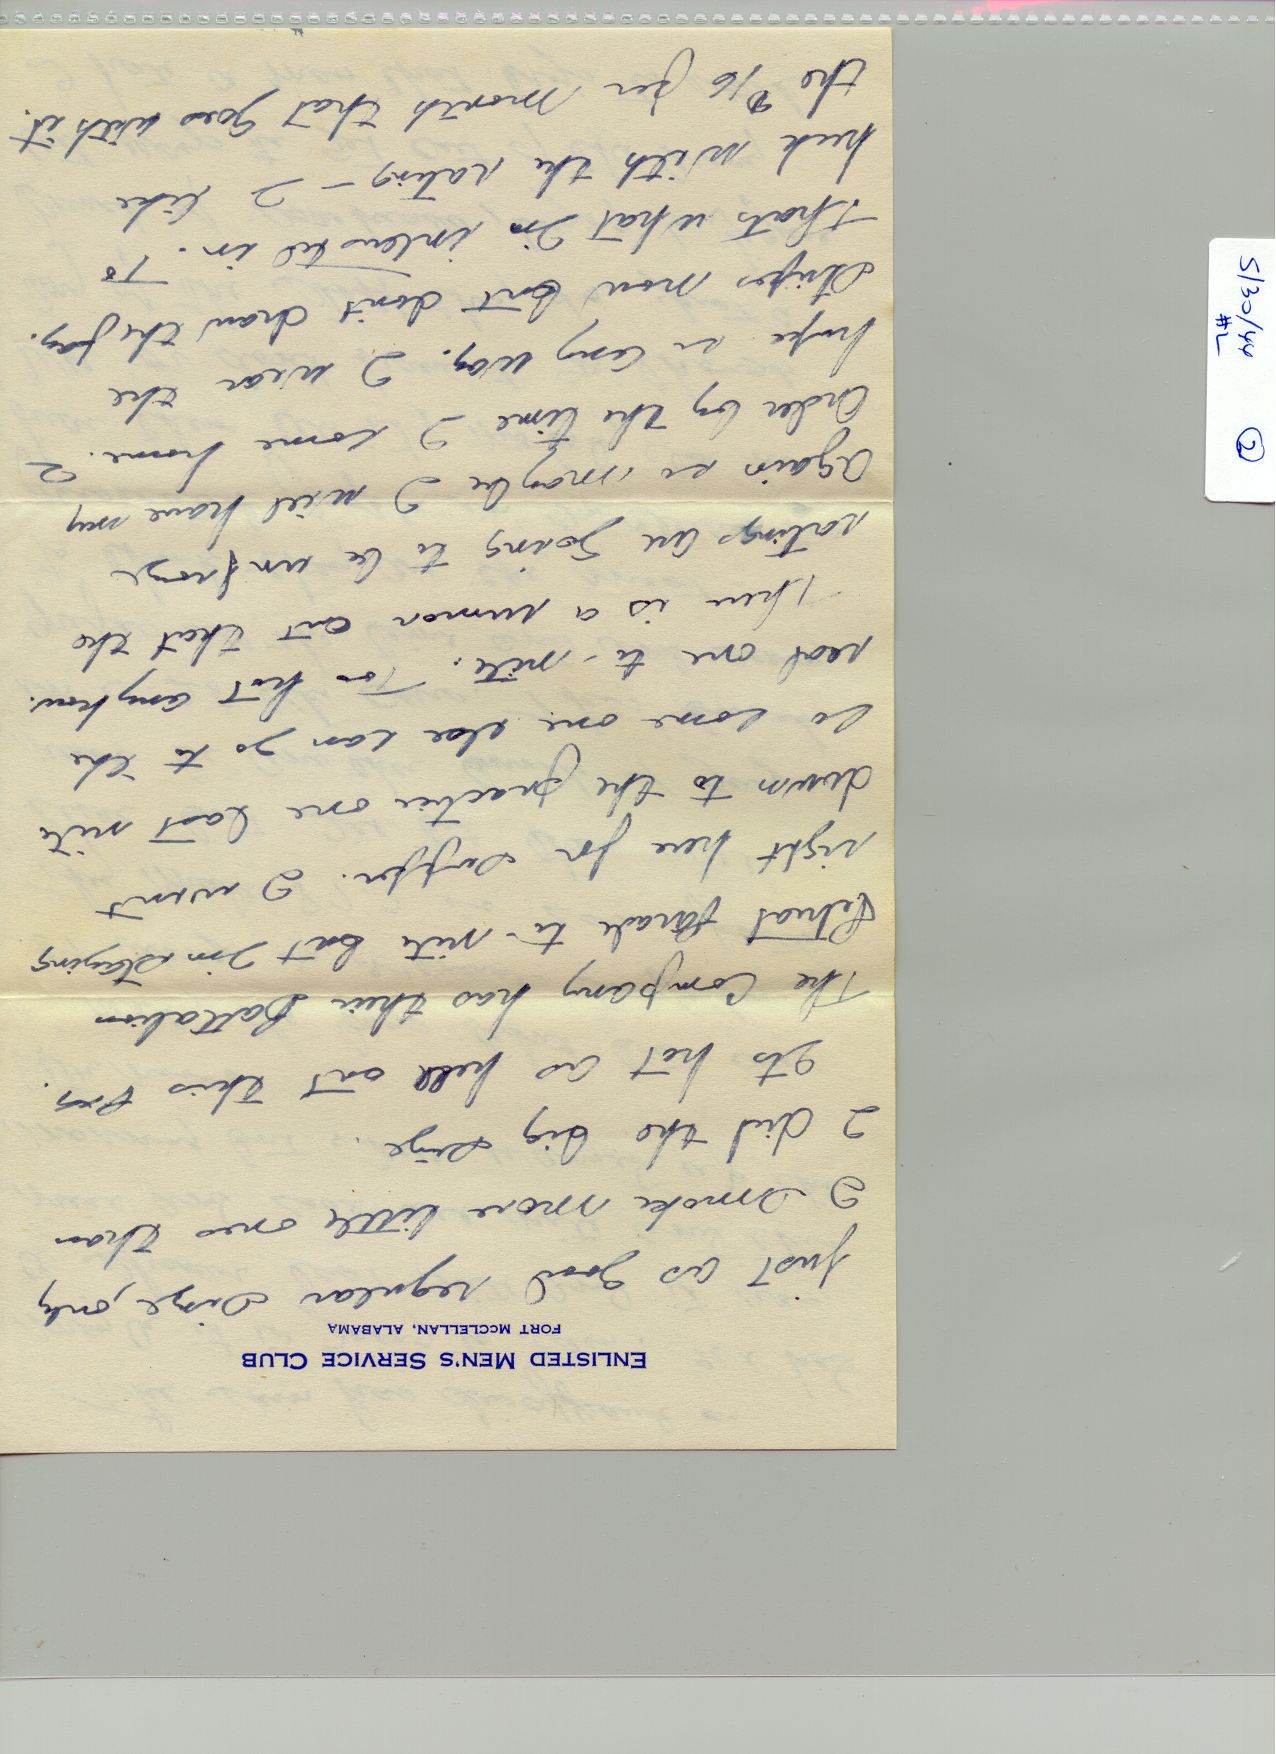 ENLISTED MEN'S SERVICE CLUB
FORT MCCLELLAN, ALABAMA
just as good regular size, only
I smoke more little ones than
I did the big size.
Its hot as hell out this
The Company has their Battalion
Retreat Parade to-nite but I'm staying
right here for supper. I went
down to the practice one last nite
so some one else can go to the
real one to-nite. Too hot anyhow.
There is a rumor out that the
ratings are going to be unfroze
again so maybe I will have my
order by the time I come home. I
hope so any way. I wear the
stripes now but don't draw the pay.
thats what I'm interested in. To
heck with the rating - I like
the $16 per month that goes with it.
5/30/44
#2
②